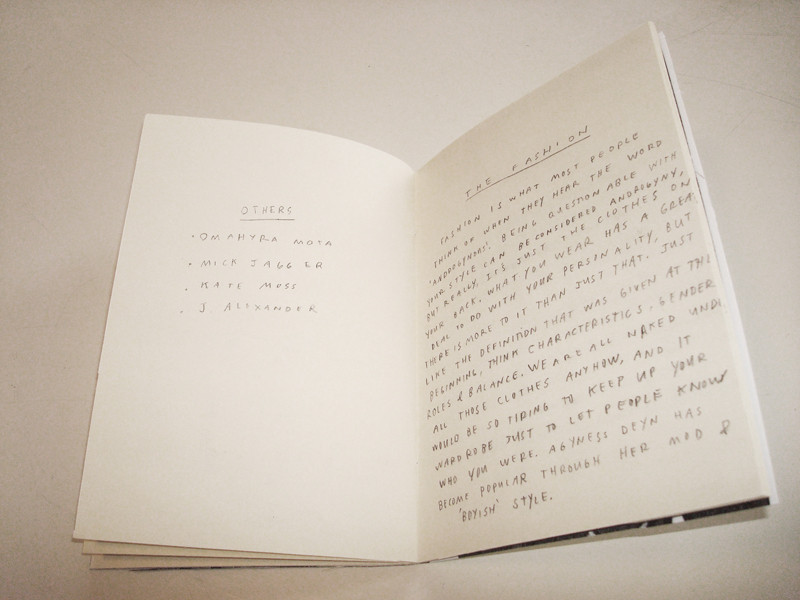 OTHERS
• OMAHYRA MOTA
• MICK JAGGER
• KATE MOSS
• J ALEXANDER
THE FASHION
FASHION IS WHAT MOST PEOPLE
THINK OF WHEN THEY HEAR THE WORD
'ANDROGYNOUS'. BEING QUESTIONABLE WITH
YOUR STYLE CAN BE CONSIDERED ANDROGYNY,
BUT REALLY, IT'S JUST THE CLOTHES ON
YOUR BACK. WHAT YOU WEAR HAS A GREAT
DEAL TO DO WITH YOUR PERSONALITY, BUT
THERE IS MORE TO IT THAN JUST THAT. JUST
LIKE THE DEFINITION THAT WAS GIVEN AT THE
BEGINNING, THINK CHARACTERISTICS, GENDER
ROLES & BALANCE. WE ARE ALL NAKED UNDER
ALL THOSE CLOTHES ANYHOW, AND IT
WOULD BE SO TIRING TO KEEP UP YOUR
WARDROBE JUST TO LET PEOPLE KNOW
WHO YOU WERE. AGYNESS DEYN HAS
BECOME POPULAR THROUGH HER MOD &
'BOYISH' STYLE.